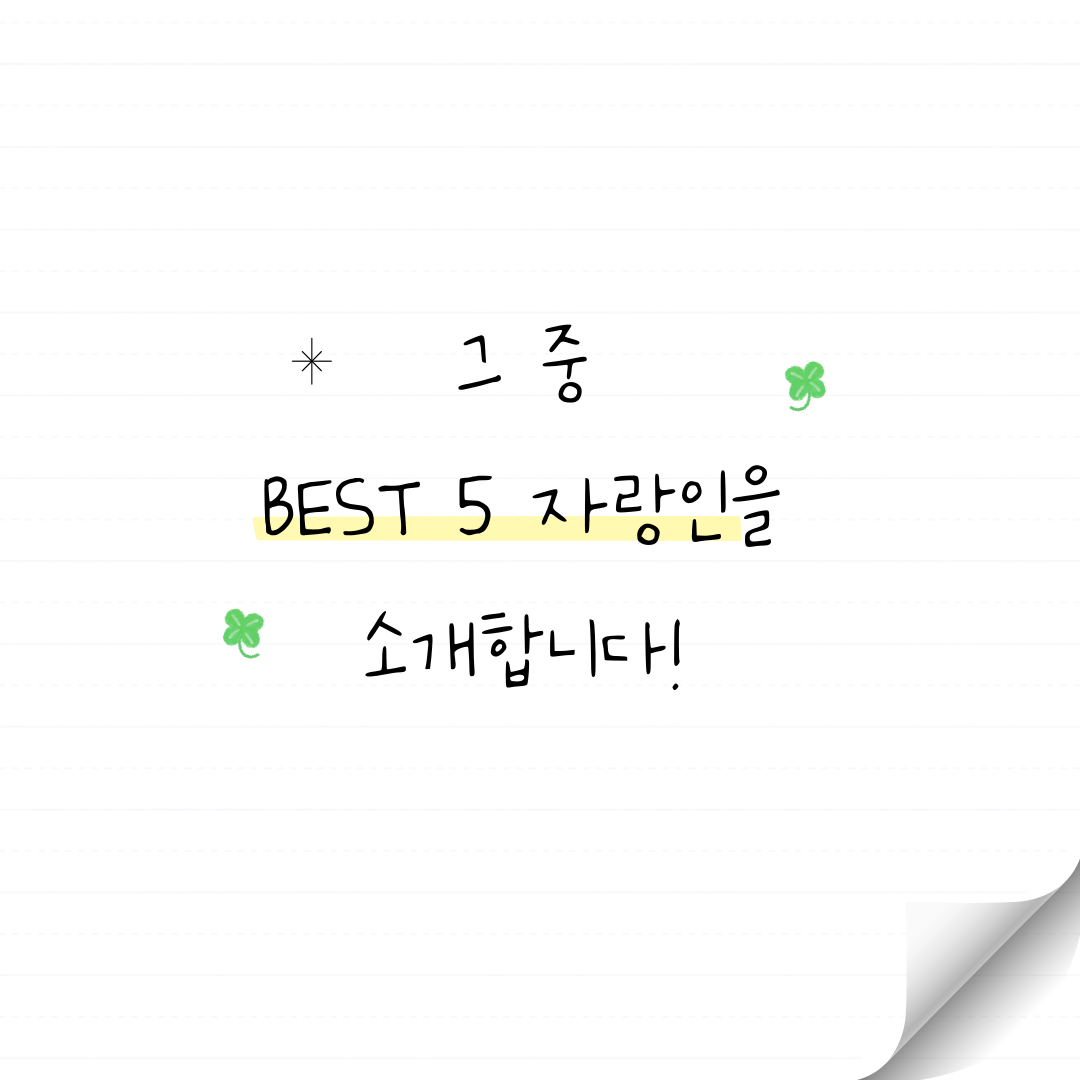 그 중
BEST 5 자랑인을
소개합니다!